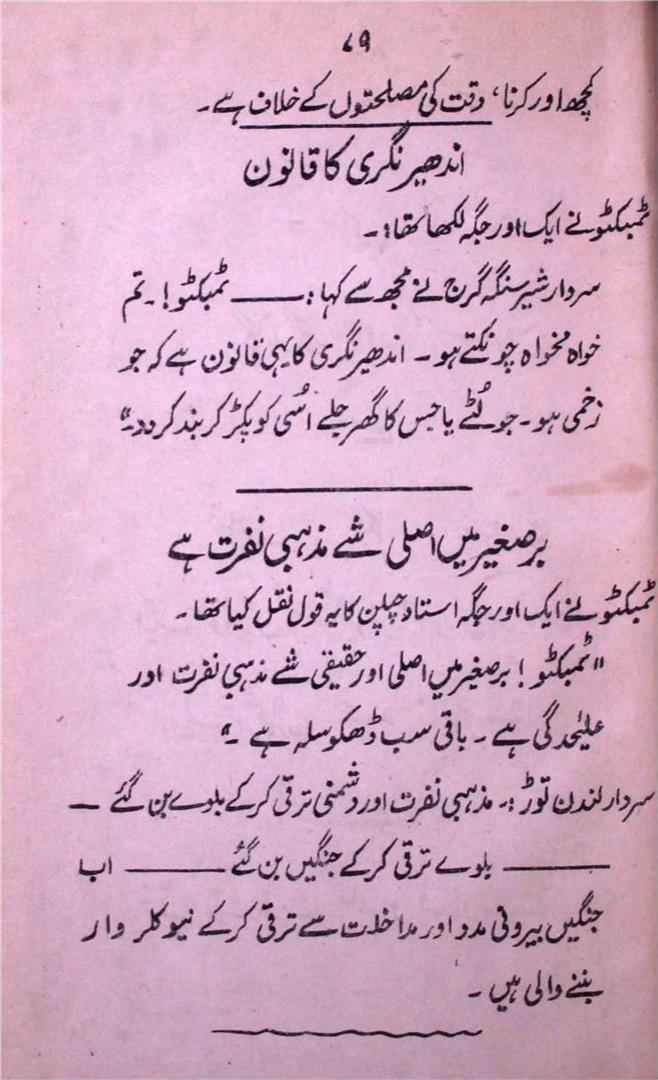 ۷۹
کچھ اور کرنا، وقت کی مصلحتوں کے خلاف ہے۔
اندھیر نگری کا قانون
ٹمبکٹو نے ایک اور جگہ لکھا تھا :۔
سردار شیر سنگھ گرج نے مجھ سے کہا : —— ٹمبکٹو ! ۔ تم
خواہ مخواہ چونکتے ہو ۔ اندھیر نگری کا یہی قانون ہے کہ جو
زخمی ہو ۔ جو لُٹے یا جس کا گھر جلے اُسی کو پکڑ کر بند کر دو۔"
برصغیر میں اصلی شے مذہبی نفرت ہے
ٹمبکٹو نے ایک اور جگہ استاد چپلن کا یہ قول نقل کیا تھا ۔
"ٹمبکٹو ! برصغیر میں اصلی اور حقیقی شے مذہبی نفرت اور
علیٰحدگی ہے ۔ باقی سب ڈھکوسلہ ہے ۔"
سردار لندن توڑ :۔ مذہبی نفرت اور دشمنی ترقی کر کے بلوے بن گئے —
—— بلوے ترقی کر کے جنگیں بن گئے —— اب
جنگیں بیرونی مدد اور مداخلت سے ترقی کر کے نیوکلر وار
بننے والی ہیں ۔